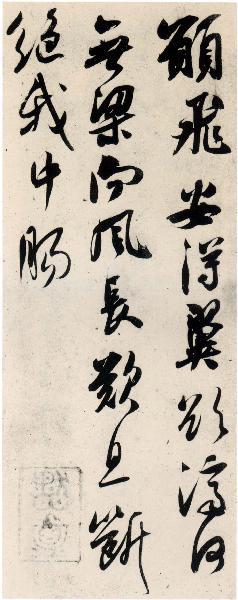 願飛安得翼欲濟河
無梁向風長歎息斷
絕我中腸